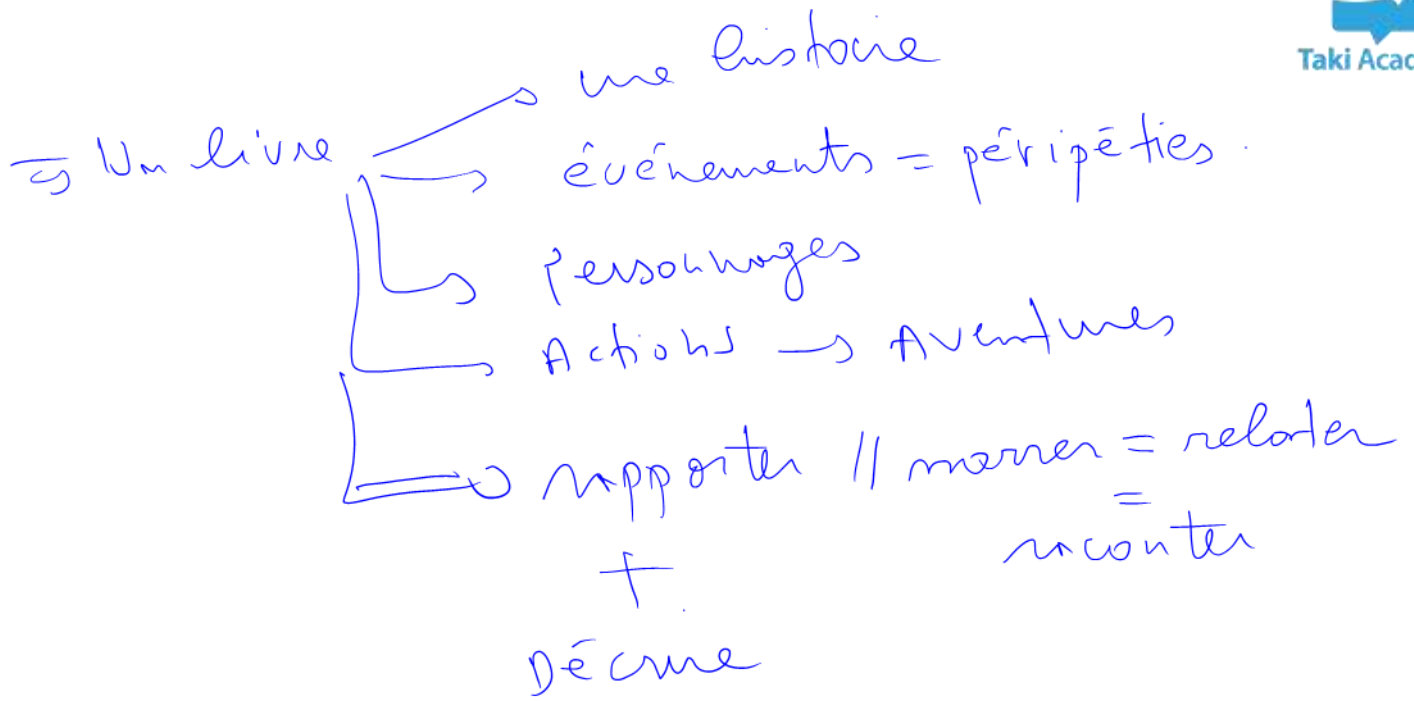 Taki Acad
une histoire
⇒ Un livre
→ événements = péripéties.
→ Personnages
→ Actions → Aventures
⇒ rapporter // narrer = relater
=
raconter
+
Décrire